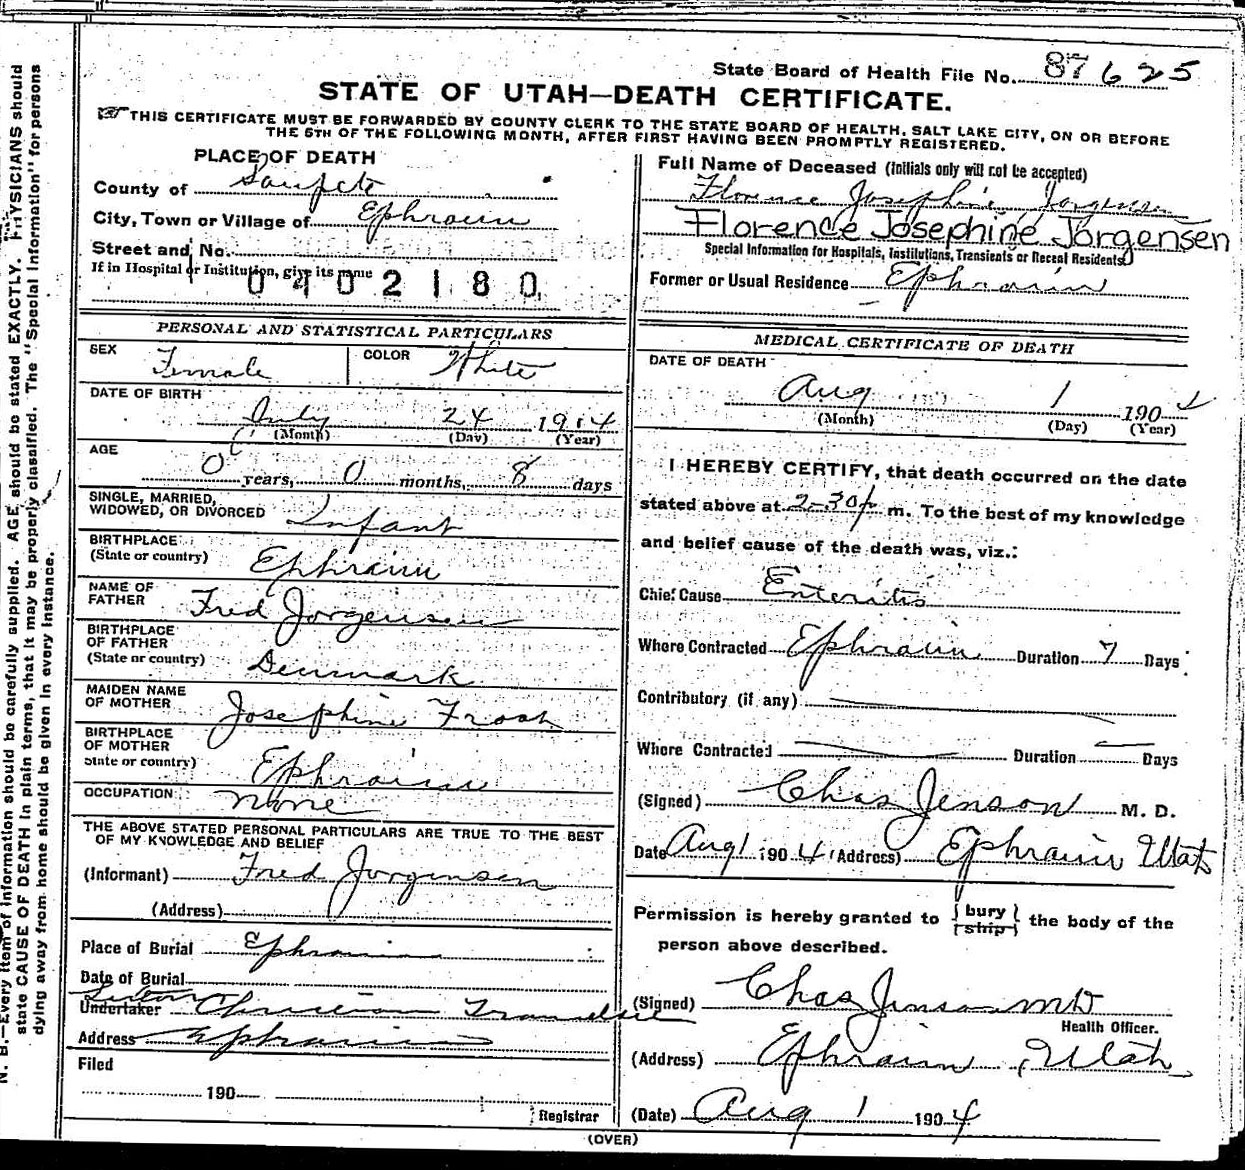 State Board of Health File No. 87625
STATE OF UTAH—DEATH CERTIFICATE.
THIS CERTIFICATE MUST BE FORWARDED BY COUNTY CLERK TO THE STATE BOARD OF HEALTH, SALT LAKE CITY, ON OR BEFORE
THE 5TH OF THE FOLLOWING MONTH, AFTER FIRST HAVING BEEN PROMPTLY REGISTERED.
PLACE OF DEATH
County of Sanpete
City, Town or Village of Ephraim
Street and No.
If in Hospital or Institution, give its name
0402180
PERSONAL AND STATISTICAL PARTICULARS
SEX Female COLOR White
DATE OF BIRTH
July 24 1904
(Month) (Day) (Year)
AGE
0 years, 0 months, 8 days
SINGLE, MARRIED,
WIDOWED, OR DIVORCED Infant
BIRTHPLACE
(State or country) Ephraim
NAME OF
FATHER Fred Jorgensen
BIRTHPLACE
OF FATHER
(State or country) Denmark
MAIDEN NAME
OF MOTHER Josephine Frost
BIRTHPLACE
OF MOTHER
State or country) Ephraim
OCCUPATION none
THE ABOVE STATED PERSONAL PARTICULARS ARE TRUE TO THE BEST
OF MY KNOWLEDGE AND BELIEF
(Informant) Fred Jorgensen
(Address)
Place of Burial Ephraim
Date of Burial
Sexton
Undertaker Christian Frandsen
Address Ephraim
Filed
190
Registrar
Full Name of Deceased (initials only will not be accepted)
Florence Josephine Jorgensen
Florence Josephine Jorgensen
Special Information for Hospitals, Institutions, Transients or Recent Residents
Former or Usual Residence Ephraim
MEDICAL CERTIFICATE OF DEATH
DATE OF DEATH
Aug 1 1904
(Month) (Day) (Year)
I HEREBY CERTIFY, that death occurred on the date
stated above at 2-30 p m. To the best of my knowledge
and belief cause of the death was, viz.:
Chief Cause Enteritis
Where Contracted Ephraim Duration 7 Days
Contributory (if any)
Where Contracted Duration Days
(Signed) Chas Jenson M. D.
Date Aug 1 1904 (Address) Ephraim Utah
Permission is hereby granted to {bury / ship} the body of the
person above described.
(Signed) Chas Jenson MD
Health Officer.
(Address) Ephraim, Utah
(Date) Aug 1 1904
(OVER)
N. B.—Every item of information should be carefully supplied. AGE should be stated EXACTLY. PHYSICIANS should
state CAUSE OF DEATH in plain terms, that it may be properly classified. The "Special Information" for persons
dying away from home should be given in every instance.